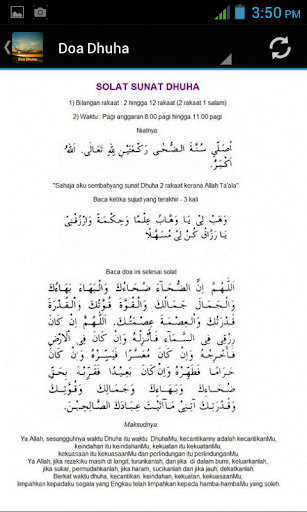 3:50 PM
Doa Dhuha
Doa Dhuha
SOLAT SUNAT DHUHA
1) Bilangan rakaat : 2 hingga 12 rakaat (2 rakaat 1 salam)
2) Waktu : Pagi anggaran 8.00 pagi hingga 11.00 pagi
Niatnya:
أُصَلِّي سُنَّةَ الضُّحَى رَكْعَتَيْنِ لِلَّهِ تَعَالَى. اَللهُ
أَكْبَرُ.
"Sahaja aku sembahyang sunat Dhuha 2 rakaat kerana Allah Ta'ala"
Baca ketika sujud yang terakhir - 3 kali
وَهَبْ لِيْ يَا وَهَّابُ عِلْمًا وَحِكْمَةً وَارْزُقْنِيْ
يَا رَزَّاقُ كُنْ لِيْ مُسَهِّلًا
Baca doa ini selesai solat
اَللَّهُمَّ إِنَّ الضُّحَآءَ ضُحَاءُكَ وَالْبَهَاءَ بَهَاءُكَ
وَالْجَمَالَ جَمَالُكَ وَالْقُوَّةَ قُوَّتُكَ وَالْقُدْرَةَ
قُدْرَتُكَ وَالْعِصْمَةَ عِصْمَتُكَ. اَللَّهُمَّ إِنْ كَانَ
رِزْقِى فِى السَّمَآءِ فَأَنْزِلْهُ وَإِنْ كَانَ فِى اْلأَرْضِ
فَأَخْرِجْهُ وَإِنْ كَانَ مُعَسَّرًا فَيَسِّرْهُ وَإِنْ كَانَ
حَرَامًا فَطَهِّرْهُ وَإِنْ كَانَ بَعِيْدًا فَقَرِّبْهُ بِحَقِّ
ضُحَاءِكَ وَبَهَاءِكَ وَجَمَالِكَ وَقُوَّتِكَ
وَقُدْرَتِكَ آتِنِىْ مَآأَتَيْتَ عِبَادَكَ الصَّالِحِيْنَ.
Maksudnya:
Ya Allah, sesungguhnya waktu Dhuha itu waktu DhuhaMu, kecantikanny adalah kecantikanMu,
keindahan itu keindahanMu, kekuatan itu kekuatanMu,
kekuasaan itu kekuasaanMu dan perlindungan itu perlindunganMu.
Ya Allah, jika rezekiku masih di langit, turunkanlah, dan jika di dalam bumi, keluarkanlah,
jika sukar, permudahkanlah, jika haram, sucikanlah dan jika jauh, dekatkanlah.
Berkat waktu dhuha, kecantikan, keindahan, kekuatan, kekuasaanMu,
limpahkan kepadaku segala yang Engkau telah limpahkan kepada hamba-hambaMu yang soleh.